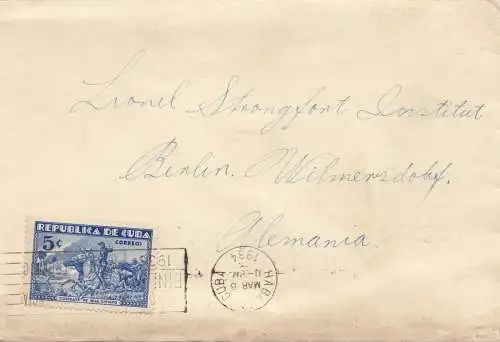 Lionel Strongfort Institut
Berlin. Wilmersdorf.
Alemania.
REPUBLICA DE CUBA
5¢ CORREOS
HABANA
MAR 6
1934
CUBA